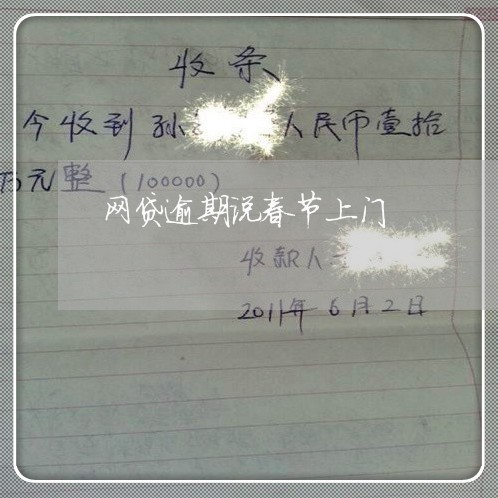 收条
今收到孙 人民币壹拾
万元整(100000)
网贷逾期说春节上门
收款人
2011年6月2日